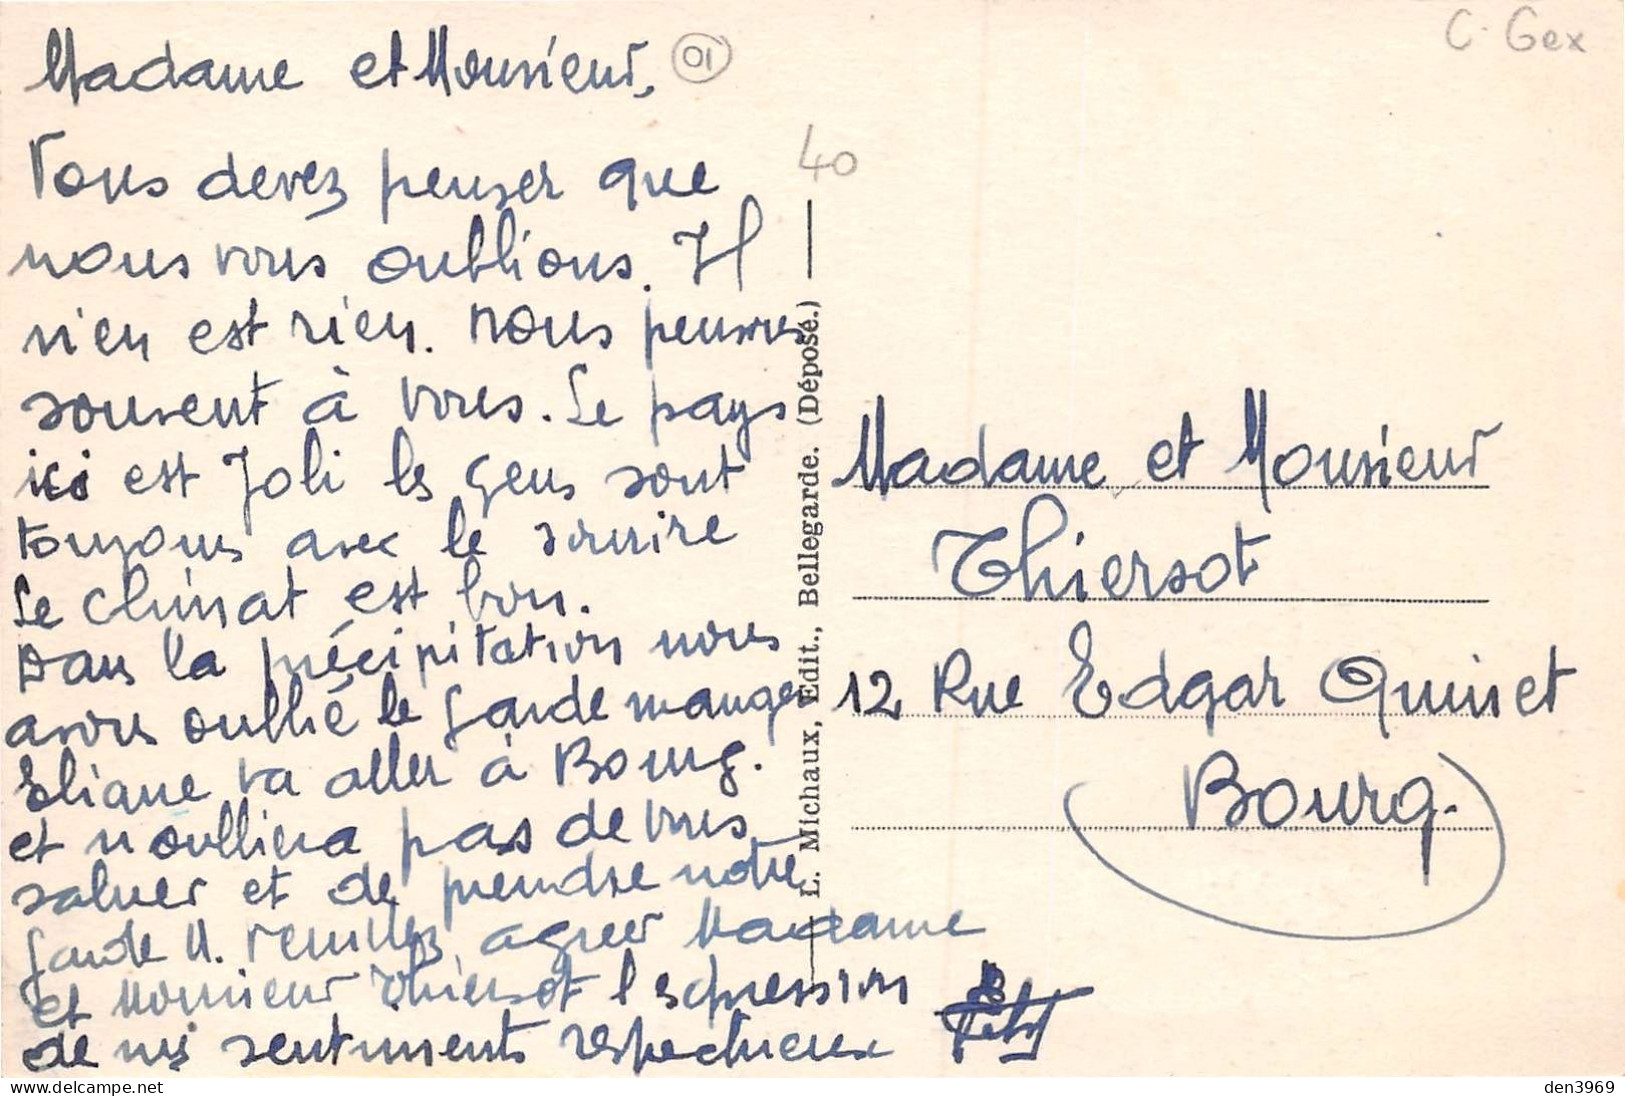 C. Gex
Madame et Monsieur, 01
Vous devez penser que
40
nous vous oublions. Il
n'en est rien. nous pensons
souvent à vous. Le pays
ici est Joli les gens sont
toujours avec le sourire
Le climat est bon.
Dans la précipitation nous
avons oublié le garde manger
Eliane va aller à Bourg.
et n'oubliera pas de vous
saluer et de prendre notre
garde M. veuillez agréer Madame
et Monsieur Thiersot l'expression
de nos sentiments respectueux
L. Michaux, Edit., Bellegarde. (Déposé.)
Madame et Monsieur
Thiersot
12 Rue Edgar Quinet
Bourg.
www.delcampe.net
den3969